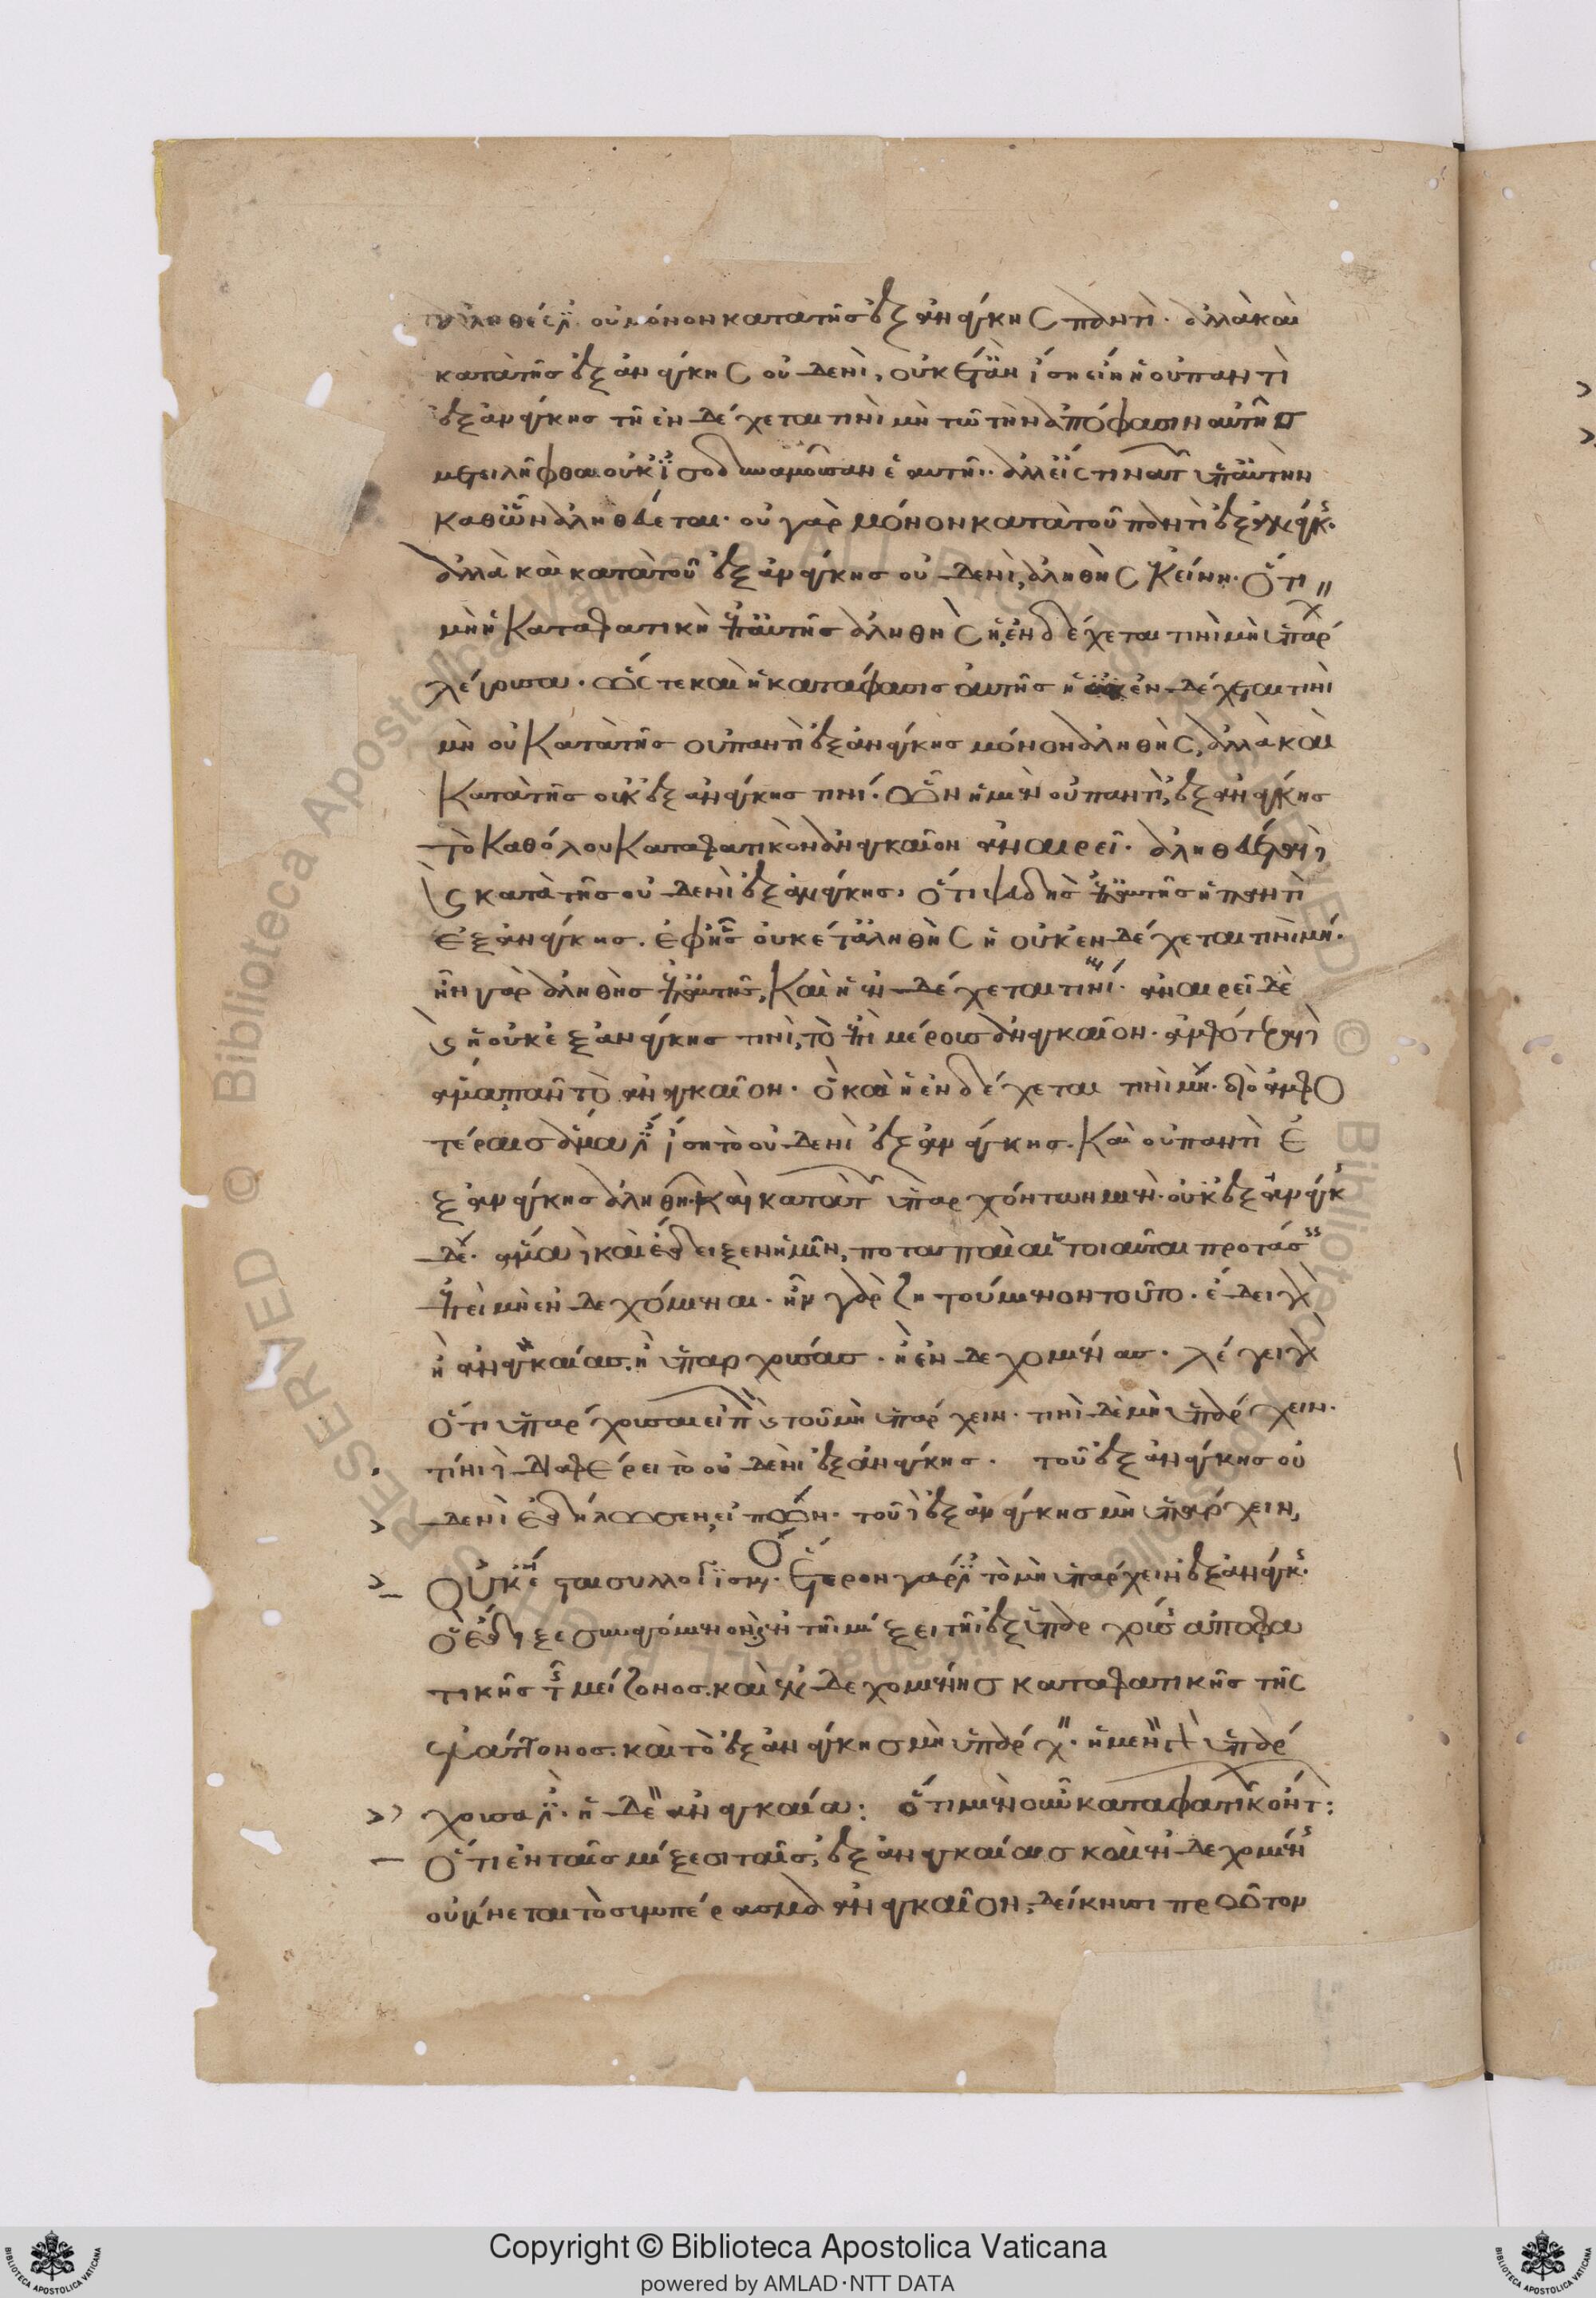 ἀληθές ἐστι οὐ μόνον κατὰ τῆς ἐξ ἀνάγκης παντί. ἀλλὰ καὶ
κατὰ τῆς ἐξ ἀνάγκης οὐδενί, οὐκέτ' ἂν ἴση εἴη ἡ οὐ παντὶ
ἐξ ἀνάγκης τῆ ἐνδέχεται τινὶ μὴ τῶ τὴν ἀπόφασιν αὐτῆς
μετειλῆφθαι οὐκ ἰσοδυναμοῦσαν ἑαυτῆ. ἀλλ' εἴς τινα τῶν ὑπ' αὐτὴν
καθ' ὧν ἀληθεύεται. οὐ γὰρ μόνον κατὰ τοῦ παντὶ ἐξ ἀνάγκης.
ἀλλὰ καὶ κατὰ τοῦ ἐξ ἀνάγκης οὐδενί, ἀληθὴς κείνη. ὅτι
μὴ ἡ καταφατικὴ ἐπ' αὐτῆς ἀληθὴς ἡ ἐνδέχεται τινὶ μὴ ὑπάρχειν
λέγουσα. ὥστε καὶ ἡ κατάφασις αὐτῆς ἡ οὐκ ἐνδέχεται τινὶ
μὴ οὐ κατὰ τῆς οὐ παντὶ ἐξ ἀνάγκης μόνον ἀληθής, ἀλλὰ καὶ
κατὰ τῆς οὐκ ἐξ ἀνάγκης τινί. ὧν ἡ μὲν οὐ παντὶ, ἐξ ἀνάγκης
τὸ καθόλου καταφατικὸν ἀναγκαῖον ἀναιρεῖ. ἀληθεύεται
καὶ κατὰ τῆς οὐδενὶ ἐξ ἀνάγκης. ὅτι ψευδὴς ἐπ' αὐτῆς ἡ παντὶ
ἐξ ἀνάγκης. ἐφ' ἧς οὐκέτ' ἀληθὴς ἡ οὐκ ἐνδέχεται τινὶ μή.
ἦν γὰρ ἀληθὴς ἐπ' αὐτῆς, καὶ ἡ ἐνδέχεται τινὶ μή. ἀναιρεῖ δὲ
καὶ ἡ οὐκ ἐξ ἀνάγκης τινί, τὸ ἐπὶ μέρους ἀναγκαῖον. ἀμφότεραι
ἅμα πᾶν τὸ ἀναγκαῖον. ὃ καὶ ἡ ἐνδέχεται τινὶ μή. διὸ ἀμφο
τέραις ἅμα ἐστὶ ἴση τὸ οὐδενὶ ἐξ ἀνάγκης. καὶ οὐ παντὶ ἐ
ξ ἀνάγκης ἀληθῆ καὶ κατὰ τῶν ὑπαρχόντων μέν. οὐκ ἐξ ἀνάγκης
δέ. ἅμα καὶ ἔδειξεν ἡμῖν, ποταπαὶ αἱ τοιαῦται προτάσεις
ἐπεὶ μὴ ἐνδεχόμεναι. ἦν γὰρ ζητούμενον τοῦτο. ἔδει γὰρ
ἢ ἀναγκαίας. ἢ ὑπαρχούσας. ἢ ἐνδεχομένας. λέγει γὰρ
ὅτι ὑπάρχουσαι εἰπὼν τοῦ μὴ ὑπάρχειν. τινὶ δὲ μὴ ὑπάρχειν.
τίνι διαφέρει τὸ οὐδενὶ ἐξ ἀνάγκης. τοῦ ἐξ ἀνάγκης οὐ
δενὶ ἐδήλωσεν, εἰπών. τοῦ ἐξ ἀνάγκης μὴ ὑπάρχειν,
οὐκ ἔσται συλλογισμός. ἕτερον γάρ ἐστι τὸ μὴ ὑπάρχειν ἐξ ἀνάγκης.
ὃ ἔδειξε συναγόμενον ἐν τῆ μίξει τῆ ἐξ ὑπαρχούσης ἀποφα
τικῆς τῆς μείζονος. καὶ ἐνδεχομένης καταφατικῆς τῆς
ἐλάττονος. καὶ τὸ ἐξ ἀνάγκης μὴ ὑπάρχειν. ἡ μὲν γὰρ ὑπάρ
χουσα ἐστί. ἡ δὲ ἀναγκαία: ὅτι μὲν οὖν καταφατικῶν ὄντων:
ὅτι ἐν ταῖς μίξεσι ταῖς, ἐξ ἀναγκαίας καὶ ἐνδεχομένης
οὐ γίνεται τὸ συμπέρασμα ἀναγκαῖον, δείκνυσι πρῶτον